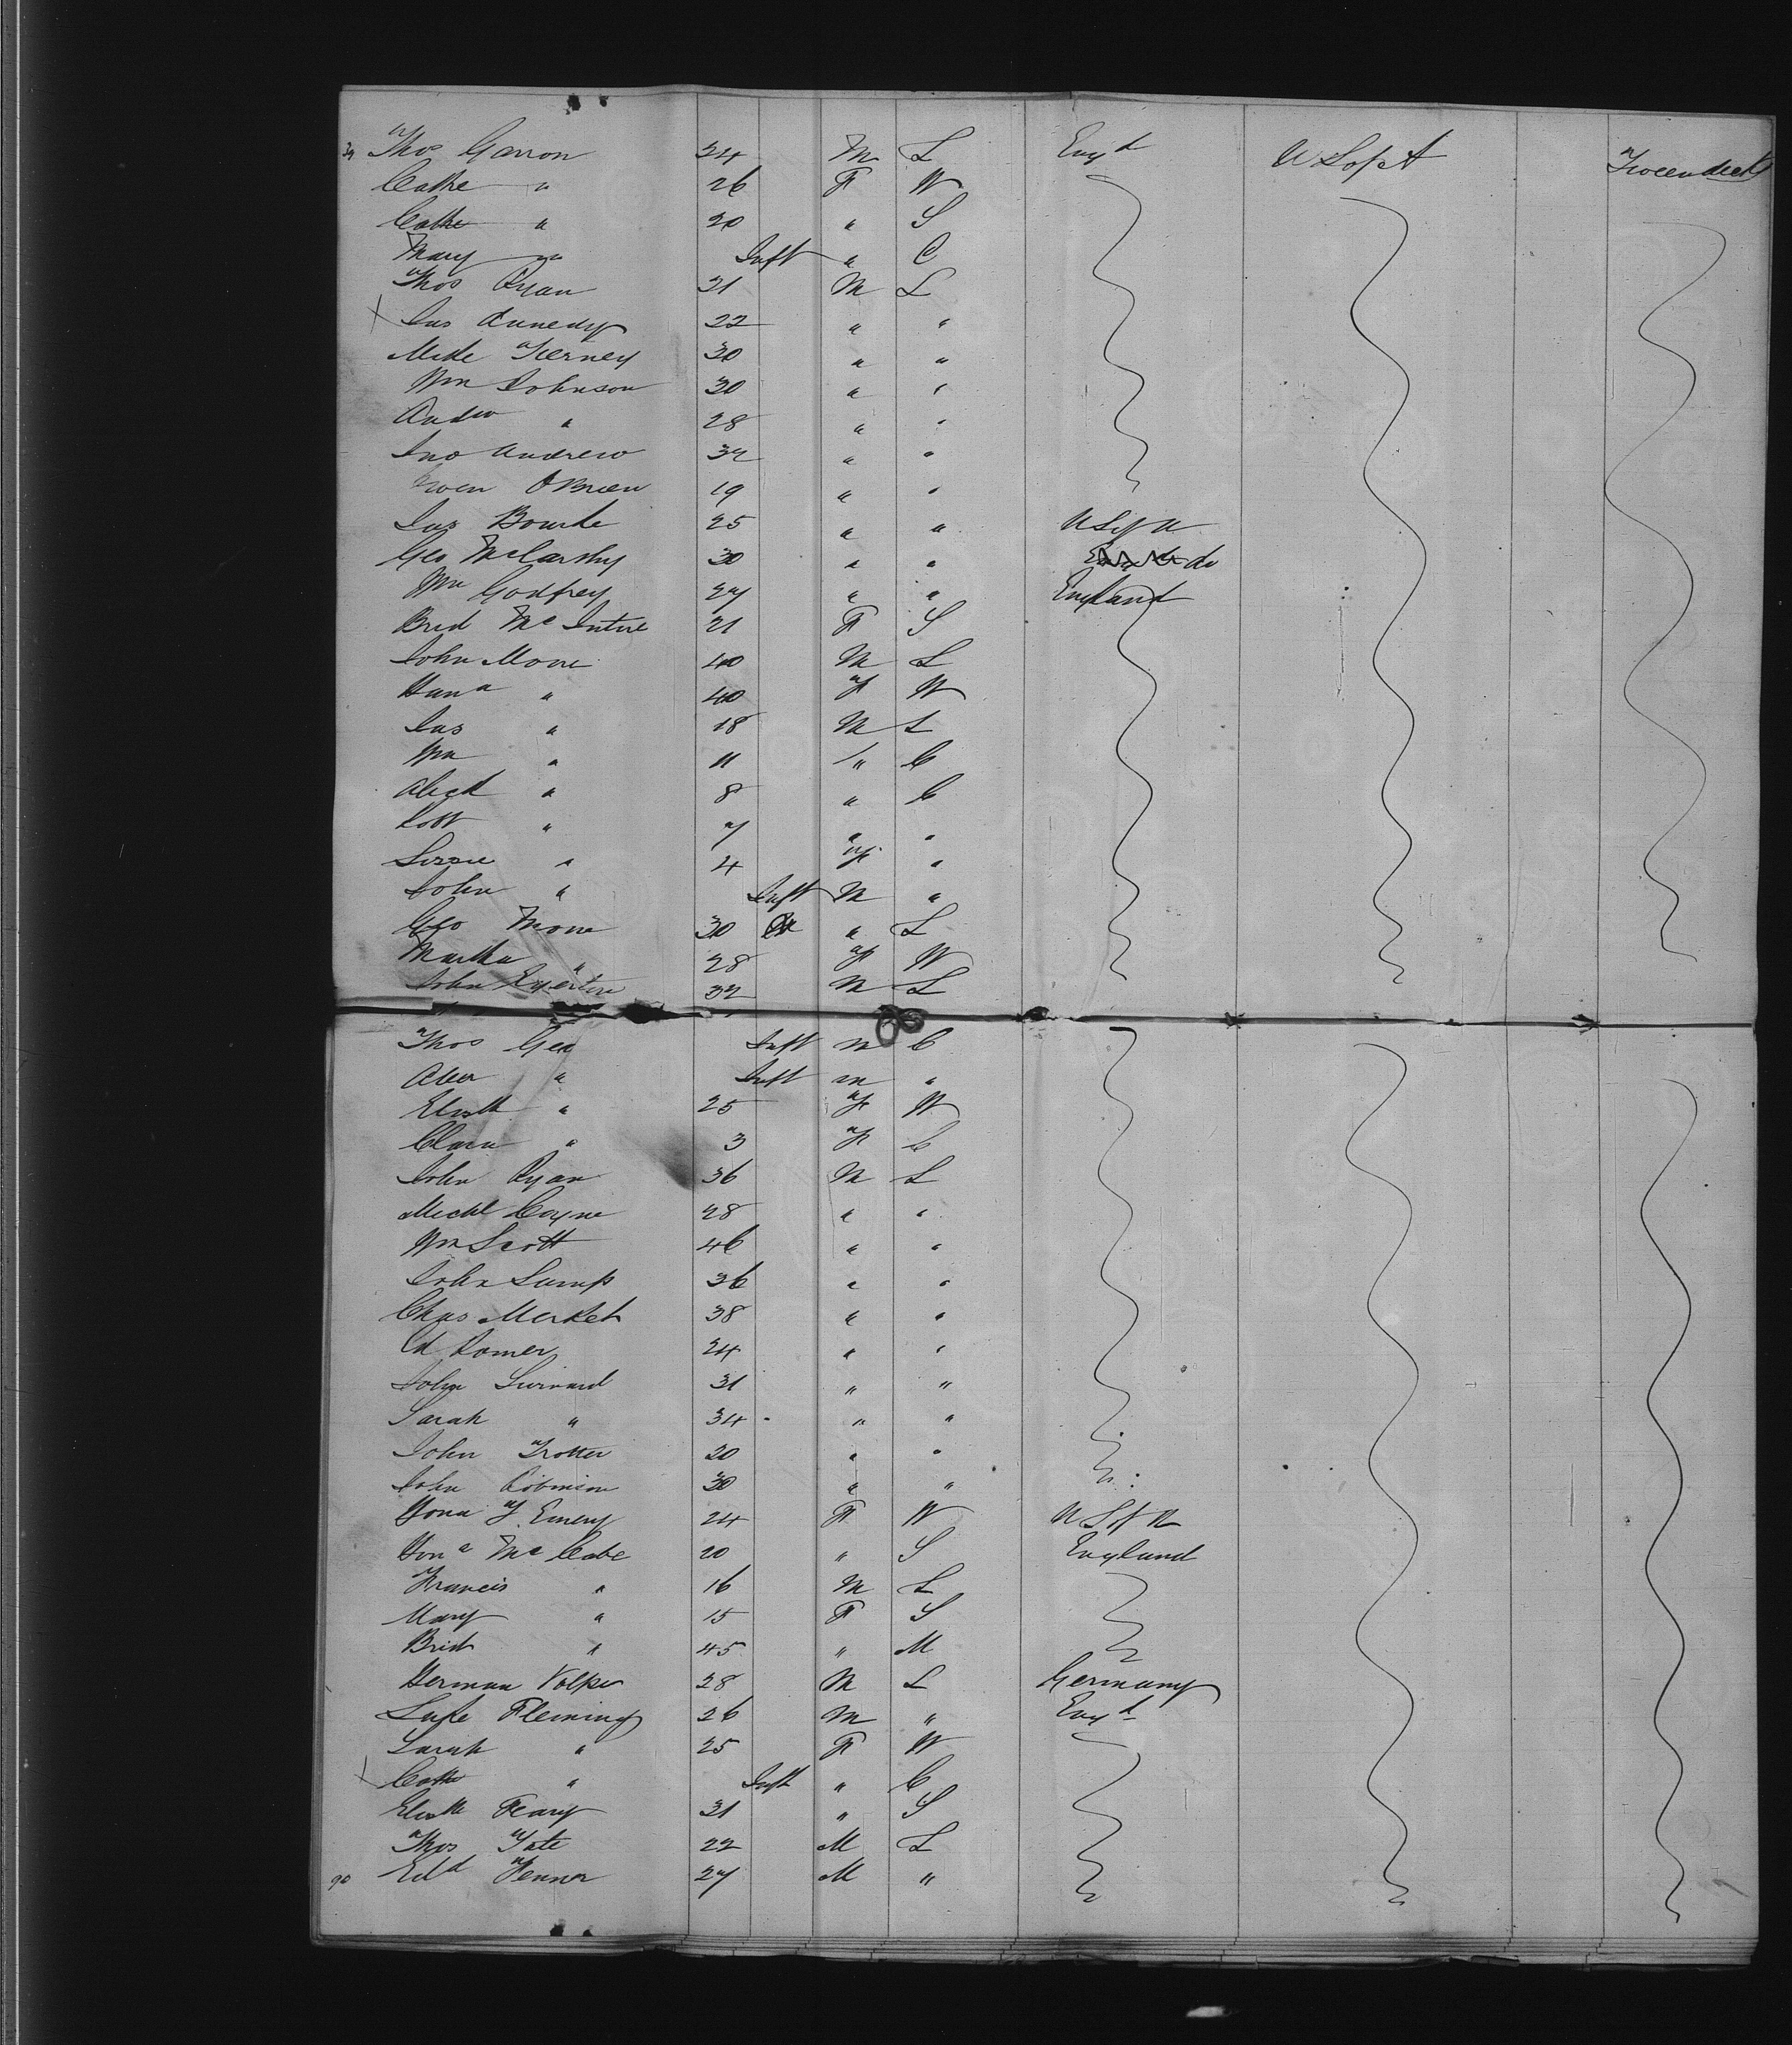 34 Thos Garron 24 M L Engd U S of A Tween decks
Cathe " 26 F W
Cathe " 20 " S
Mary " Inft " C
Thos Ryan 21 M L
Jas 22 " "
Mike Tierney 30 " "
Wm Johnson 30 " "
Andw " 28 " "
Jno Andrew 32 " "
Owen OBrien 19 " "
Jas Bourke 25 " " U S of A
Geo McCarthy 30 " " do
Wm Godfrey 27 " " England
Brid McIntire 21 F S
John Moore 40 M L
Hana " 40 F W
Jas " 18 M L
Wm " 11 " C
Alexd " 8 " C
Robt " 7 " "
Lizzie " 4 F "
John " Inft M "
Geo Moore 30 " L
Martha " 28 F W
John 32 M L
Thos Gea Inft M C
" Inft M "
Elizth " 25 F W
Clara " 3 F C
John Ryan 36 M L
Michl Coyne 28 " "
Wm Scott 46 " "
John Lump 36 " "
Chas Merket 38 " "
Romer 24 " "
John 31 " "
Sarah " 34 " "
John Trotter 20 " "
John Robinson 30 " "
Hona T. Emery 24 F W U S of A
Hona McCabe 20 " S England
Francis " 16 M L
Mary " 15 F S
Brid " 45 " M
Herman Volper 28 M L Germany
Luke Fleming 26 M " Engd
Sarah " 25 F W
Cathe " Inft " C
Elizth Feary 31 " S
Thos Tate 22 M L
90 Edd Fenner 27 M "